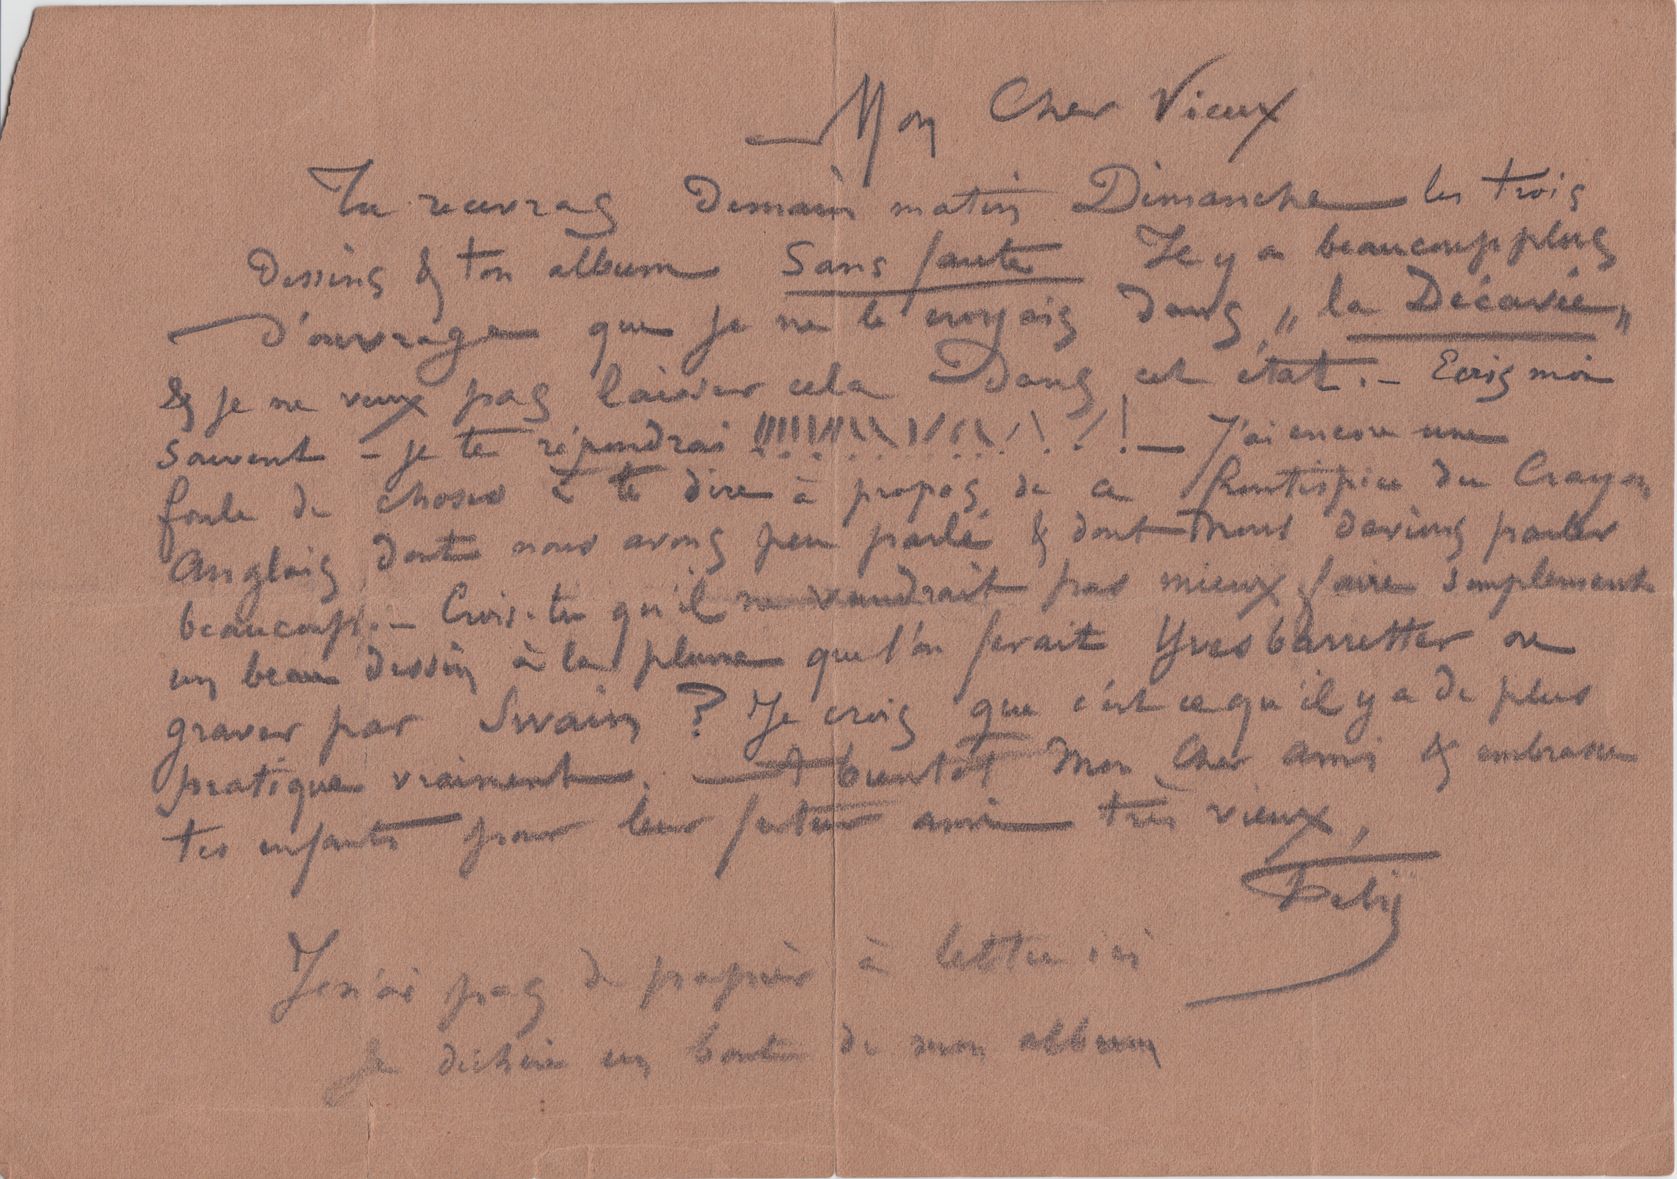 Mon Cher Vieux
Tu recevras Demain matin Dimanche les trois
Dessins & ton album Sans faute Il y a beaucoup plus
d'ouvrage que je ne le croyais dans „la Décavée„
& je ne veux pas laisser cela Dans cet état. – Ecris moi
souvent – je te répondrai !!!!!!!!!!!!!!!!!! — J'ai encore une
foule de choses à te dire à propos de ce frontispice du Crayon
Anglais dont nous avons peu parlé & dont nous devions parler
beaucoup. – Crois-tu qu'il ne vaudrait pas mieux faire simplement
un beau dessin à la plume que l'on ferait Yves barretter ou
graver par Swain ? Je crois que c'est ce qu'il y a de plus
pratique vraiment. — A bientôt Mon Cher ami & embrasse
tes enfants pour leur futur ami très vieux,
J'en'ai pas de papier à lettre ici
je déchire un bout de mon album